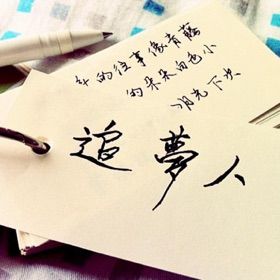 年的往事像青藤
的朵朵白色小
月光下央
追夢人